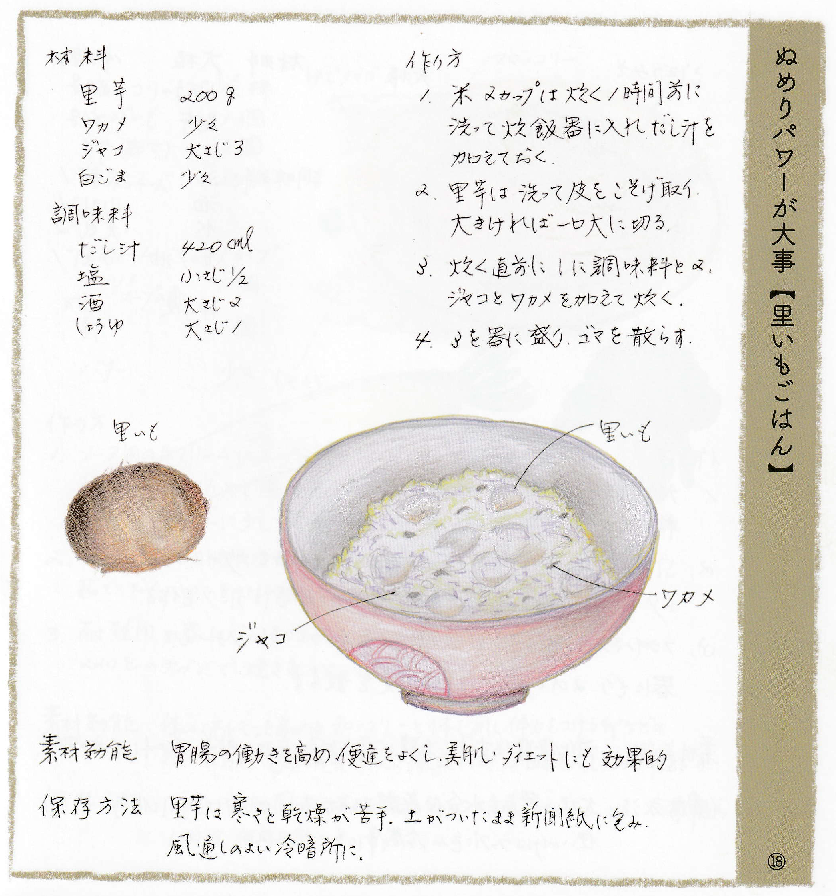 ぬめりパワーが大事【里いもごはん】
材料
里芋 200g
ワカメ 少々
ジャコ 大さじ3
白ごま 少々
調味料
だし汁 420cml
塩 小さじ1/2
酒 大さじ2
しょうゆ 大さじ1
作り方
1. 米2カップは炊く1時間前に
洗って炊飯器に入れ、だし汁を
加えておく.
2. 里芋は洗って皮をこそげ取り.
大きければ一口大に切る.
3. 炊く直前に1に調味料と2.
ジャコとワカメを加えて炊く.
4. 3を器に盛り.ゴマを散らす.
里いも
里いも
ワカメ
ジャコ
素材効能 胃腸の働きを高め、便通をよくし、美肌・ダイエットにも効果的
保存方法 里芋は寒さと乾燥が苦手.土がついたまま新聞紙に包み.
風通しのよい冷暗所に.
⑱